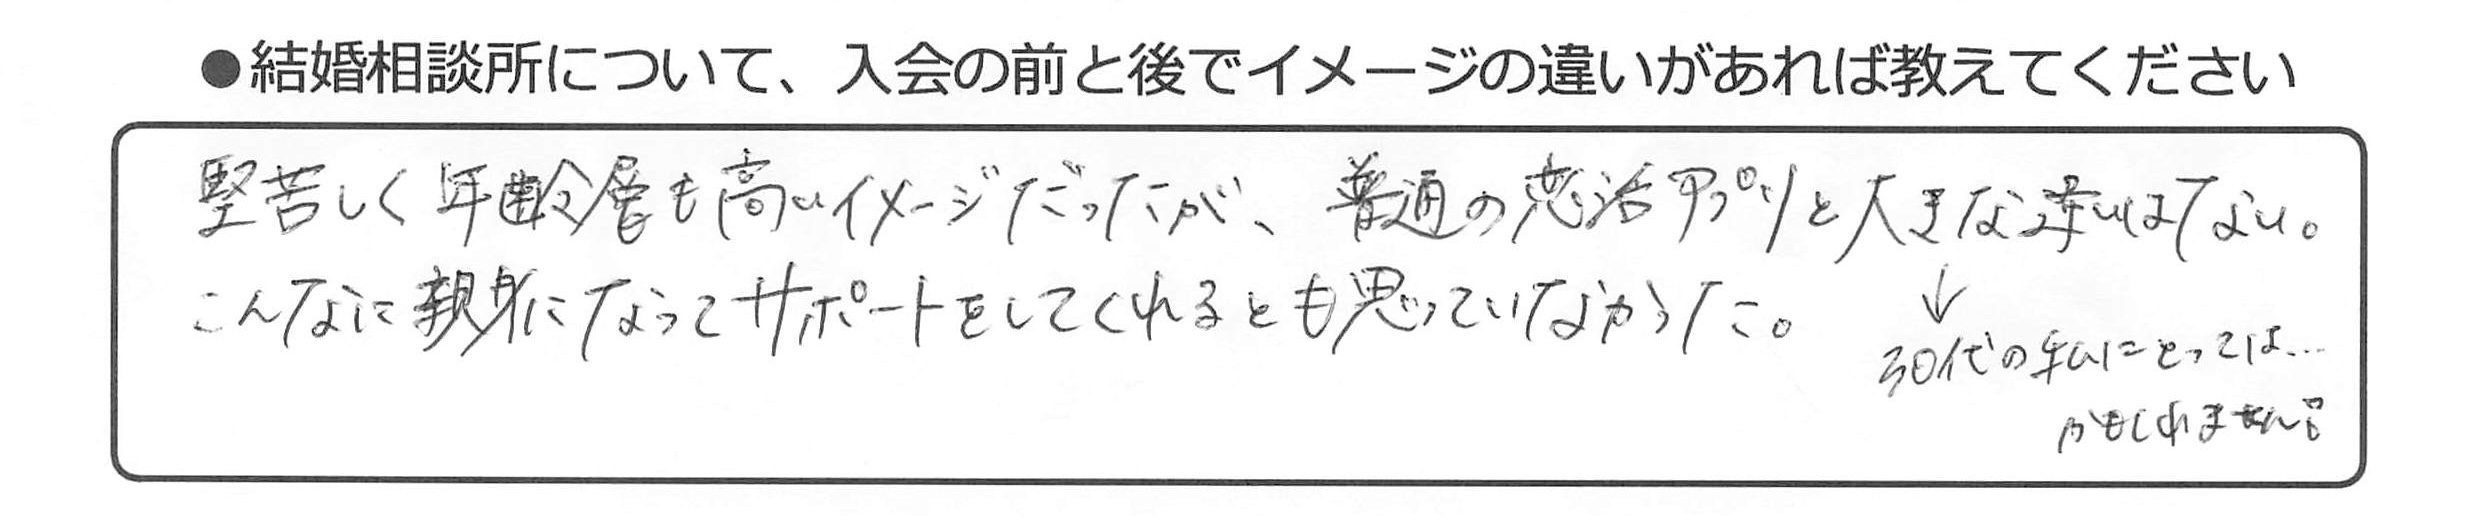 ●結婚相談所について、入会の前と後でイメージの違いがあれば教えてください
堅苦しく年齢層も高いイメージだったが、普通の恋活アプリと大きな違いはない。
こんなに親身になってサポートをしてくれるとも思っていなかった。
↓
30代の私にとっては…
かもしれません